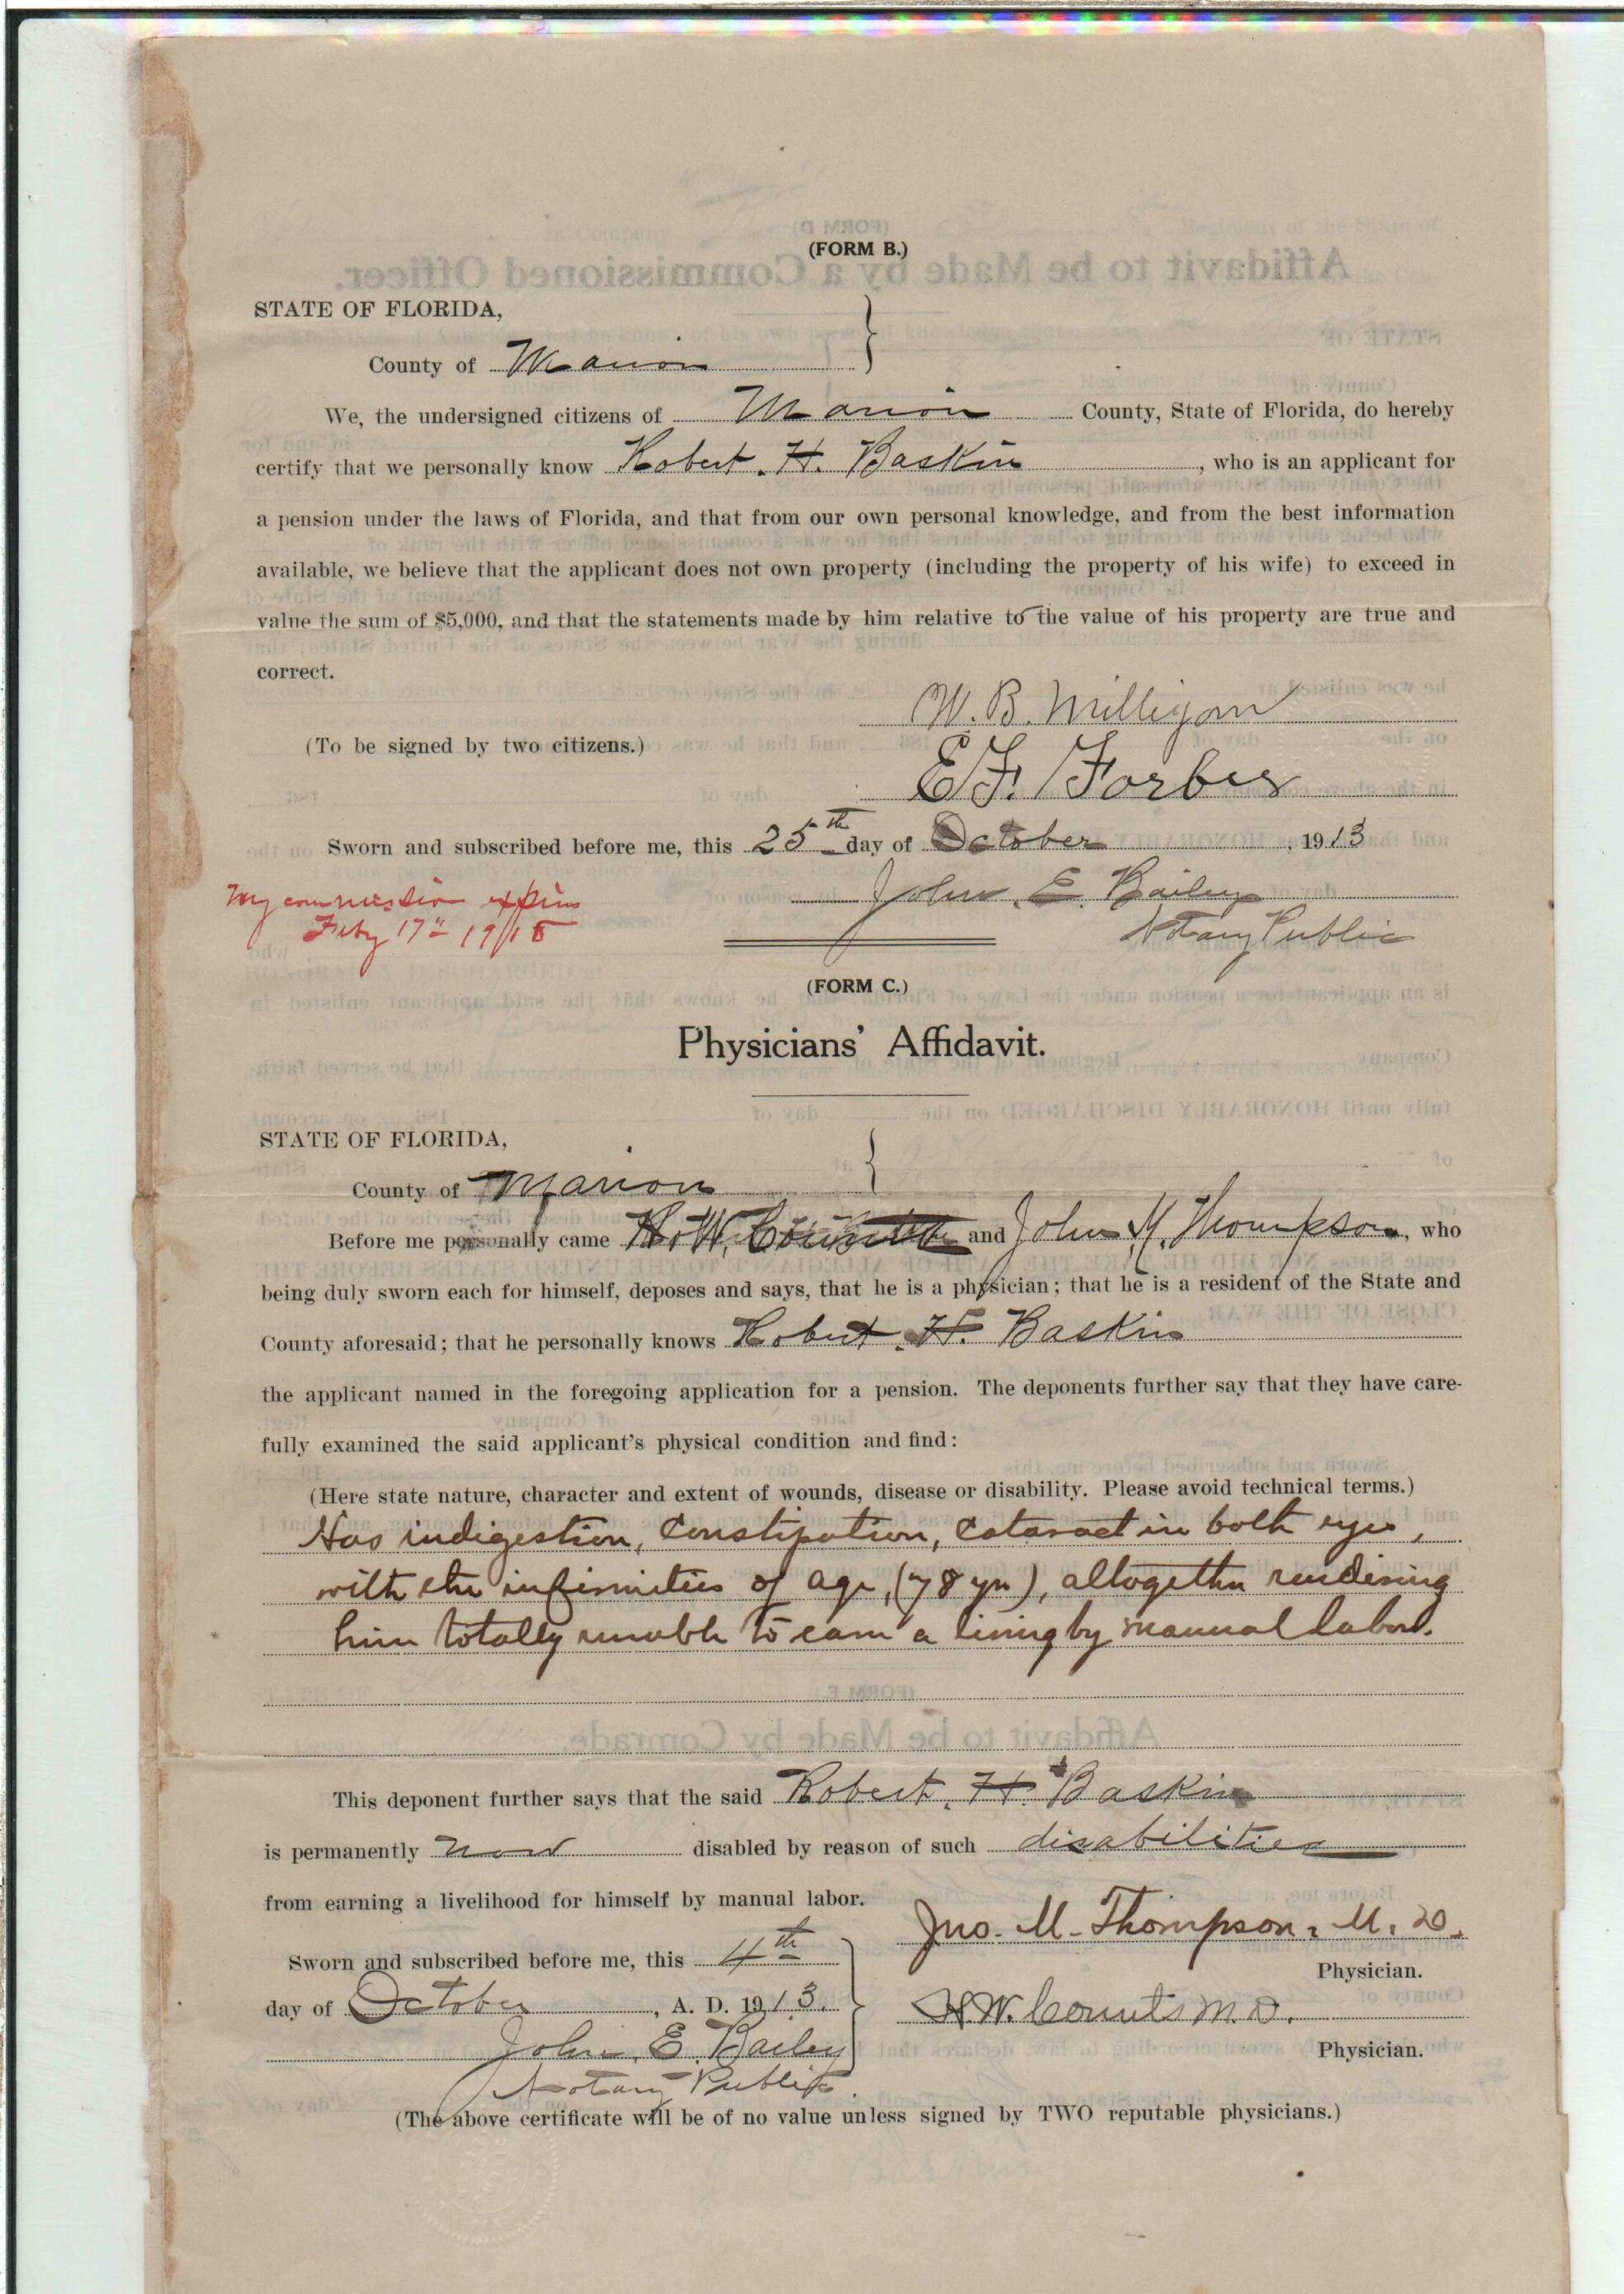 (FORM B.)
STATE OF FLORIDA,
County of Marion
We, the undersigned citizens of Marion County, State of Florida, do hereby
certify that we personally know Robert H. Baskin, who is an applicant for
a pension under the laws of Florida, and that from our own personal knowledge, and from the best information
available, we believe that the applicant does not own property (including the property of his wife) to exceed in
value the sum of $5,000, and that the statements made by him relative to the value of his property are true and
correct.
W. B. Milligan
(To be signed by two citizens.)
E F. Forbes
Sworn and subscribed before me, this 25th day of October, 1913
John E. Bailey
My commission expires
Feby 17th 1915
Notary Public
(FORM C.)
Physicians' Affidavit.
STATE OF FLORIDA,
County of Marion
Before me personally came H. W. Counts and John M. Thompson, who
being duly sworn each for himself, deposes and says, that he is a physician; that he is a resident of the State and
County aforesaid; that he personally knows Robert H. Baskin
the applicant named in the foregoing application for a pension. The deponents further say that they have care-
fully examined the said applicant's physical condition and find:
(Here state nature, character and extent of wounds, disease or disability. Please avoid technical terms.)
Has indigestion, Constipation, Cataract in both eyes,
with the infirmities of age, (78 yrs), altogether rendering
him totally unable to earn a living by manual labor.
This deponent further says that the said Robert H. Baskin
is permanently now disabled by reason of such disabilities
from earning a livelihood for himself by manual labor.
Jno. M. Thompson, M. D.
Physician.
Sworn and subscribed before me, this 4th
day of October, A. D. 1913.
H. W. Counts M. D.
Physician.
John E. Bailey
Notary Public.
(The above certificate will be of no value unless signed by TWO reputable physicians.)